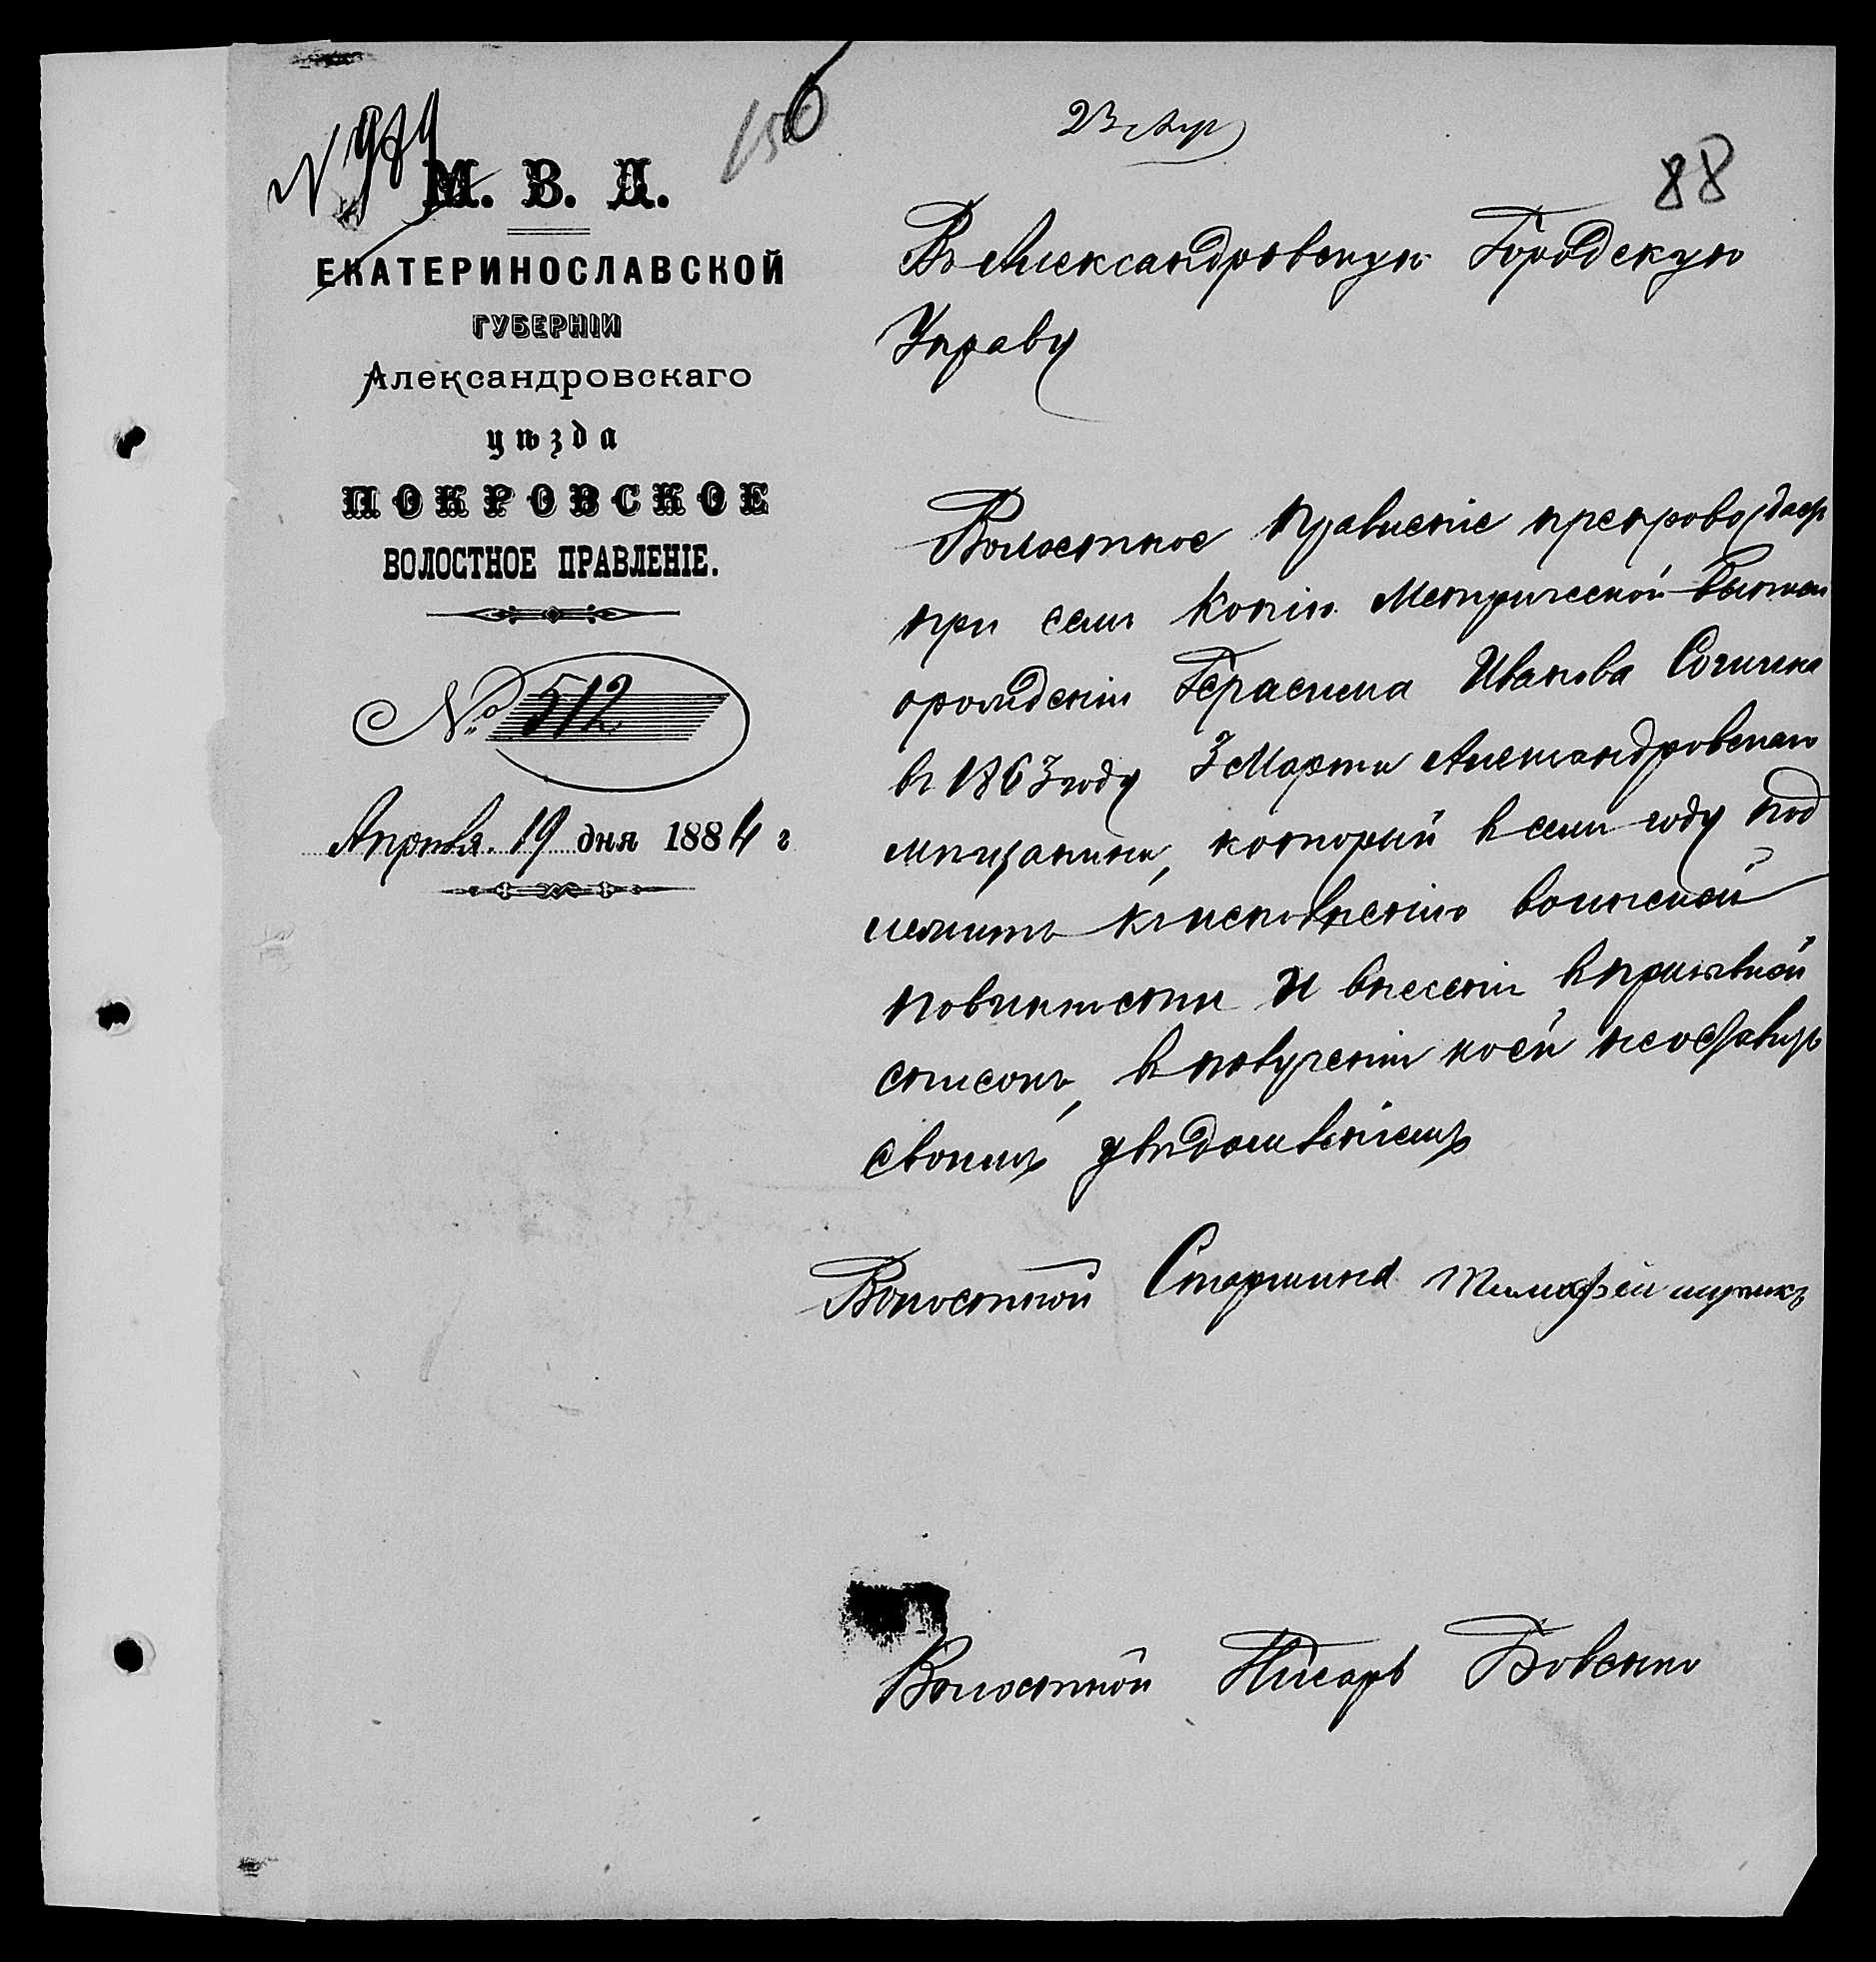 156
23 Апр
88
М. В. Д.
ЕКАТЕРИНОСЛАВСКОЙ
ГУБЕРНІИ
Александровскаго
уѣзда
ПОКРОВСКОЕ
ВОЛОСТНОЕ ПРАВЛЕНІЕ.
№ 512
Апрѣля 19 дня 1884 г
Въ Александровскую Городскую
Управу
Волостное Правленіе препровождаетъ
при семъ Копію Метрической Выписи
орождении Герасима Иванова
в 1863 году 3 Марта Александровскаго
мѣщанина, который в семъ году под
лежитъ къ исполненію воинской
повинности и внесении в призывной
списокъ, в получении коей неоставить
своимъ увѣдомленіемъ
Волостной Старшина Тимофей
Волостной Писарь Бовенко